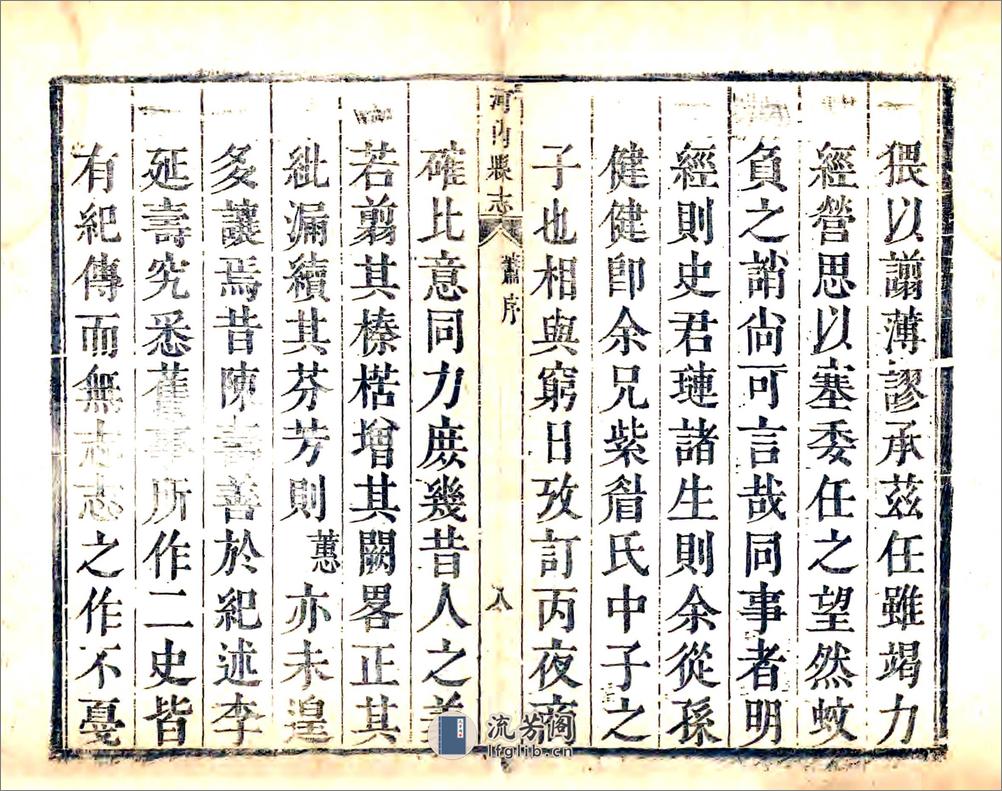 猥以譾薄謬承茲任雖竭力
經營思以塞委任之望然蚊
負之誚尚可言哉同事者明
經則史君璉諸生則余從孫
健健卽余兄紫眉氏中子之
子也相與窮日攷訂丙夜商
河內縣志 蕭序 八
確比意同力庶幾昔人之善
若剪其榛楛增其闕畧正其
紕漏續其芬芳則蕙亦未遑
多讓焉昔陳壽善於紀述李
延壽究悉舊事所作二史皆
有紀傳而無志志之作不憂
流芳阁
lfglib.cn